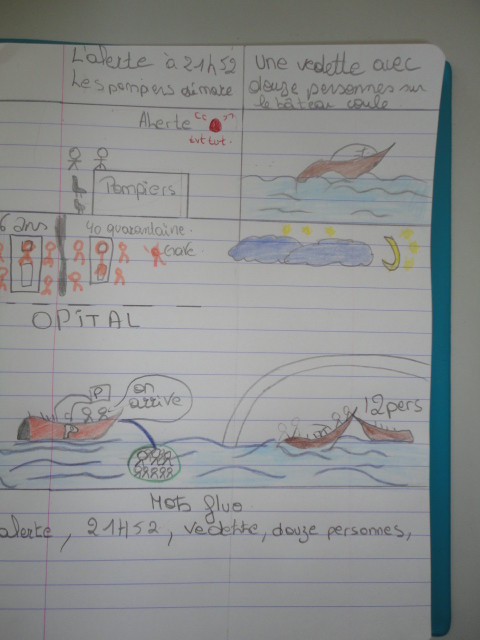 L'alerte à 21h52
Les pompers
une vedette avec
douze personnes sur
le bâteau coule
Alerte
tut tut
Pompiers
6 ans
40 quarantaine.
Grave
OPITAL
P
on
arrive
12pers
Mots fluo
alerte, 21H52, vedette, douze personnes,